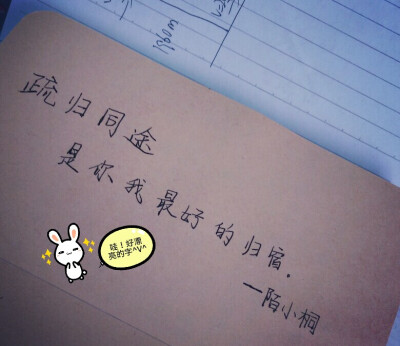 疏归同途
是你我最好的归宿.
—陌小桐
哇！好漂
亮的字^V^